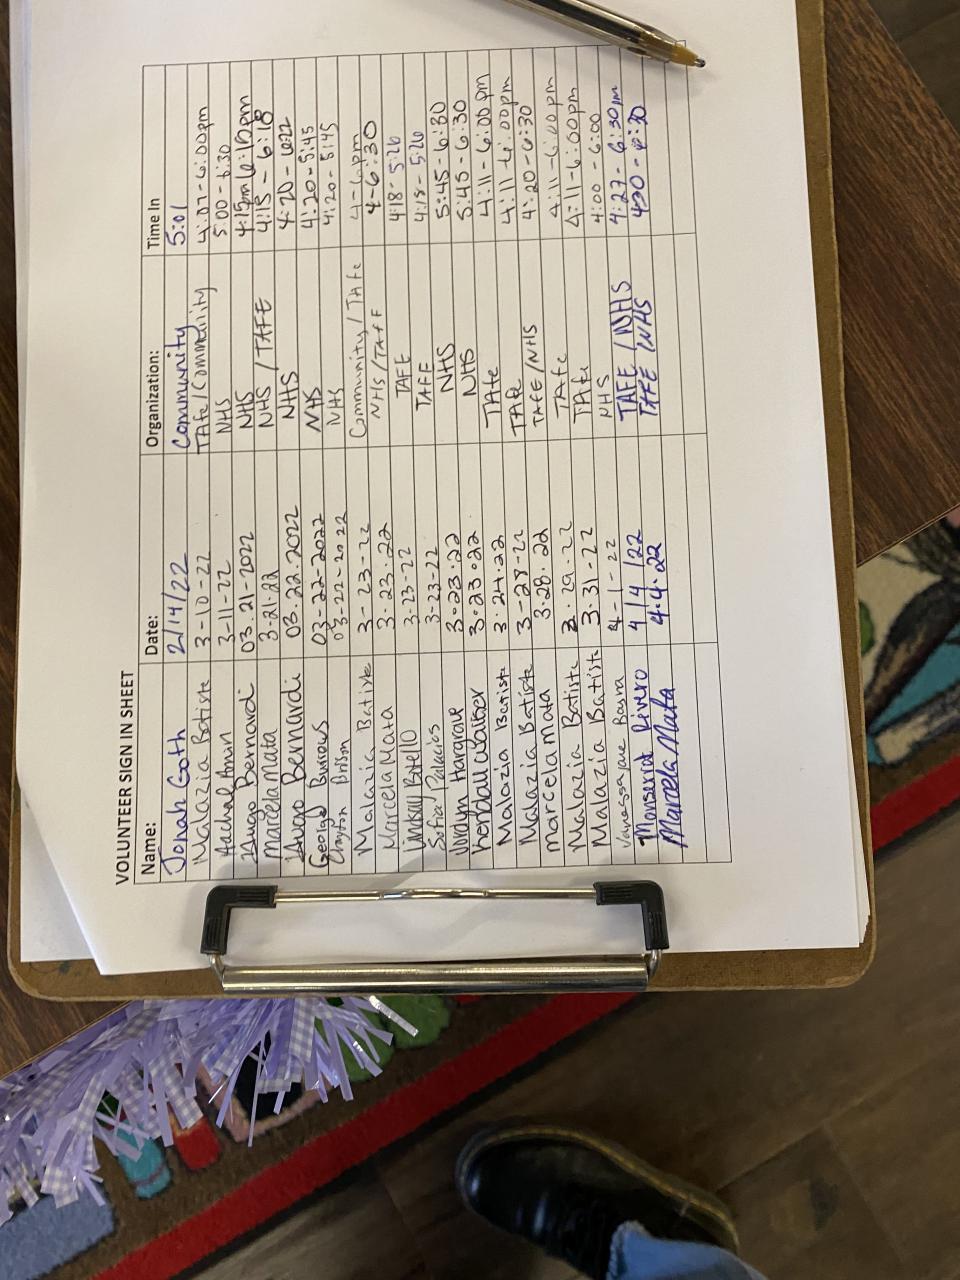 VOLUNTEER SIGN IN SHEET
Name: Date: Organization: Time In
Jonah Goth 2/14/22 Community 5:01
Malazia Batiste 3-10-22 TAfe/Community 4:07-6:00pm
Aechal Amin 3-11-22 NHS 5:00-6:30
Hugo Bernardi 03.21-2022 NHS 4:15pm 6:18pm
Marcela Mata 3.21.22 NHS / TAFE 4:15-6:18
Hugo Bernardi 03.22.2022 NHS 4:20-6:22
Burrows 03-22-2022 NHS 4:20-5:45
Clayton Brison 03-22-2022 NHS 4:20-5:45
Malazia Batiste 3-23-22 Community / TAfe 4-6pm
Marcela Mata 3.23.22 NHS/TAFF 4-6:30
3-23-22 TAFE 4:18-5:26
Sofia Palacios 3-23-22 TAFF 4:18-5:26
Jordyn Hargrove 3-23.22 NHS 5:45-6:30
Kendall Walker 3-23.22 NHS 5:45-6:30
Malazia Batiste 3.24.22 TAfe 4:11-6:00pm
Malazia Batiste 3-28-22 TAfe 4:11-6:00pm
marcela mata 3.28.22 TAFE/NHS 4:20-6:30
Malazia Batiste 3.29.22 TAfe 4:11-6:00pm
Malazia Batiste 3.31-22 TAfe 4:11-6:00pm
Vanessa Jane 4-1-22 NHS 4:00-6:00
Monserrat Rivero 4/4/22 TAFE/NHS 4:27-6:30pm
Marcela Mata 4.4.22 TAFE/NHS 430-6:30